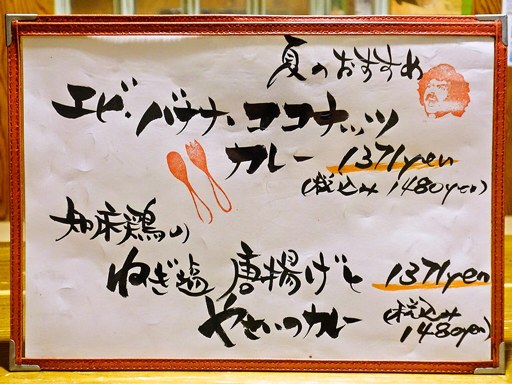 夏のおすすめ
エビ・バナナ・ココナッツ
カレー 1371yen
(税込み 1480yen)
知床鶏の
ねぎ塩 唐揚げと 1371yen
やさいのカレー (税込み
1480yen)